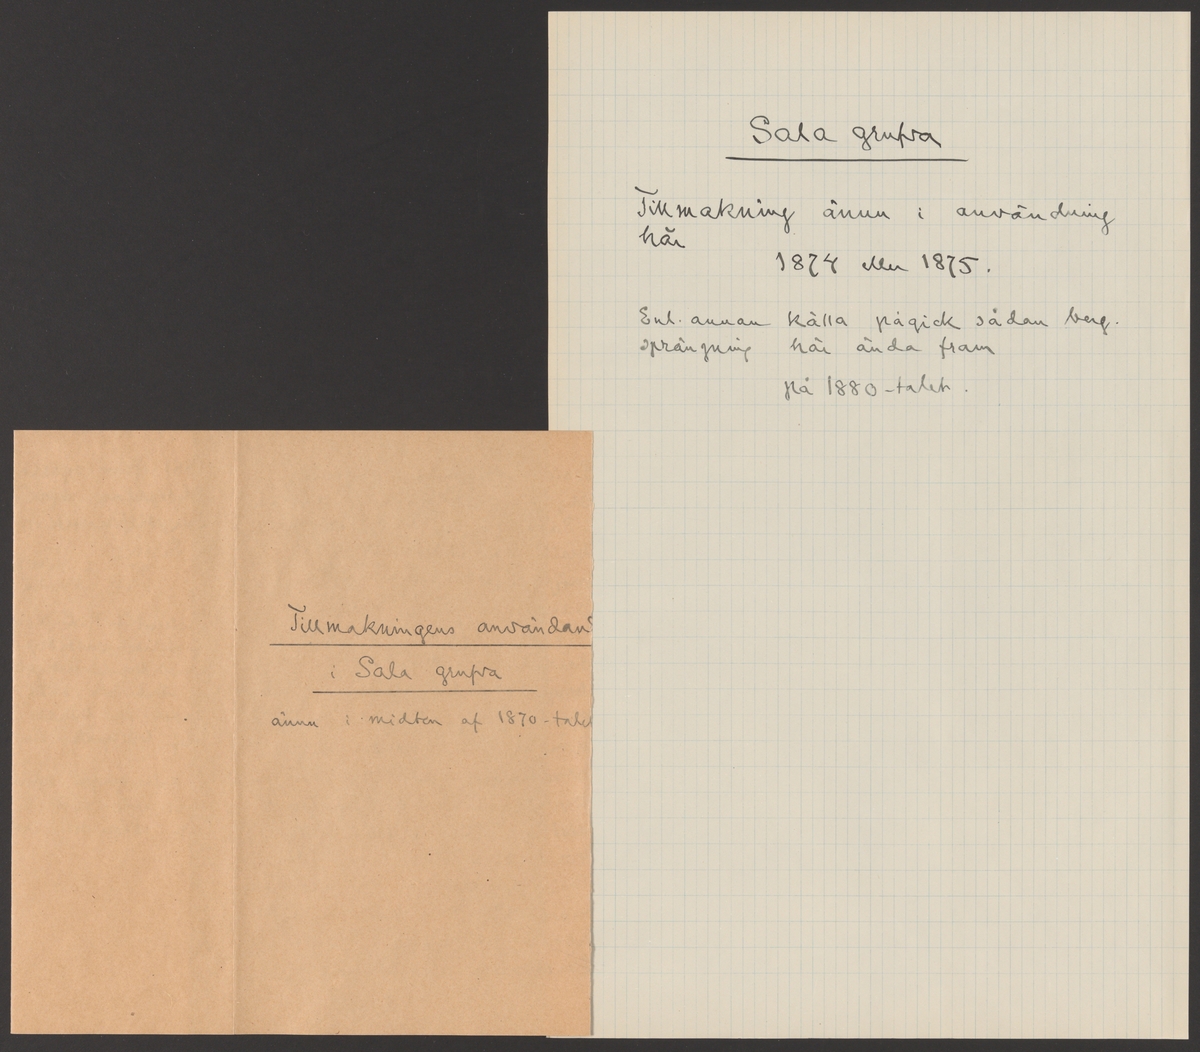 Sala grufva
Tillmakning ännu i användning
här
1874 eller 1875.
Enl. annan källa pågick sådan berg-
sprängning här ända fram
på 1880-talet.
Tillmakningens användan
i Sala grufva
ännu i midten af 1870-talet